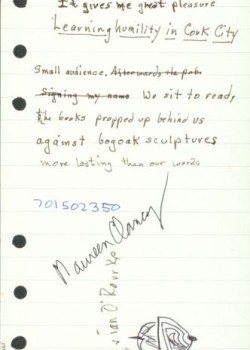 It gives me great pleasure
Learning humility in Cook City
Small audience. Afterwards the poets
Signing my name We sit to read,
The books propped up behind us
against bogoak sculptures
more lasting than our words
701502350
Maureen Clancy